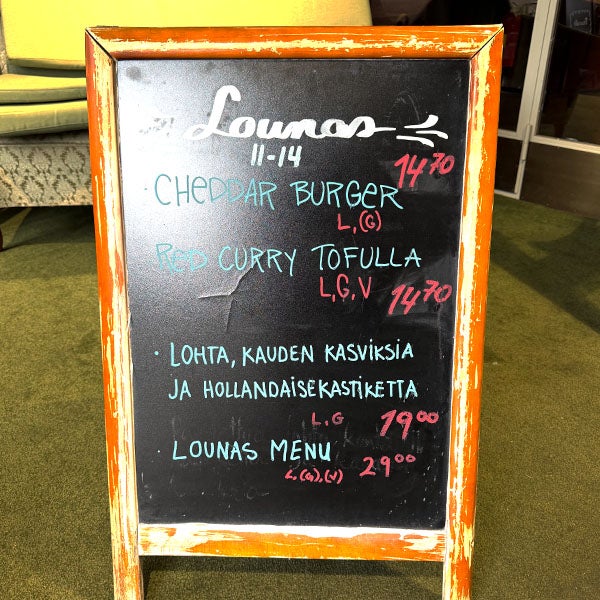 Lounas
11-14
· CHEDDAR BURGER 14⁷⁰
L,(G)
RED CURRY TOFULLA
L,G,V 14⁷⁰
· LOHTA, KAUDEN KASVIKSIA
JA HOLLANDAISEKASTIKETTA
L,G 19⁰⁰
· LOUNAS MENU
L,(G),(V) 29⁰⁰